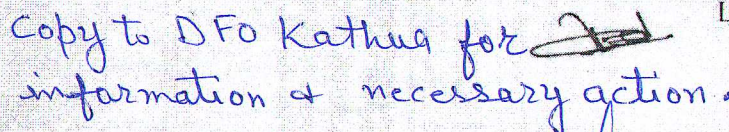 Copy to DFO Kathua for
information & necessary action.